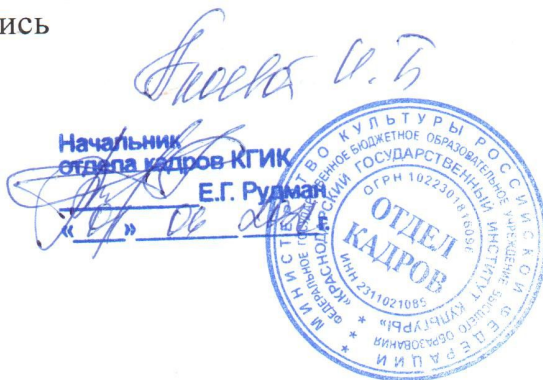 ись
И.Б
Начальник
отдела кадров КГИК
Е.Г. Рудман
« 01 » 06
г.
МИНИСТЕРСТВО КУЛЬТУРЫ РОССИЙСКОЙ ФЕДЕРАЦИИ
ФЕДЕРАЛЬНОЕ ГОСУДАРСТВЕННОЕ БЮДЖЕТНОЕ ОБРАЗОВАТЕЛЬНОЕ УЧРЕЖДЕНИЕ ВЫСШЕГО ОБРАЗОВАНИЯ
«КРАСНОДАРСКИЙ ГОСУДАРСТВЕННЫЙ ИНСТИТУТ КУЛЬТУРЫ»
ИНН 2311021085
ОТДЕЛ
КАДРОВ